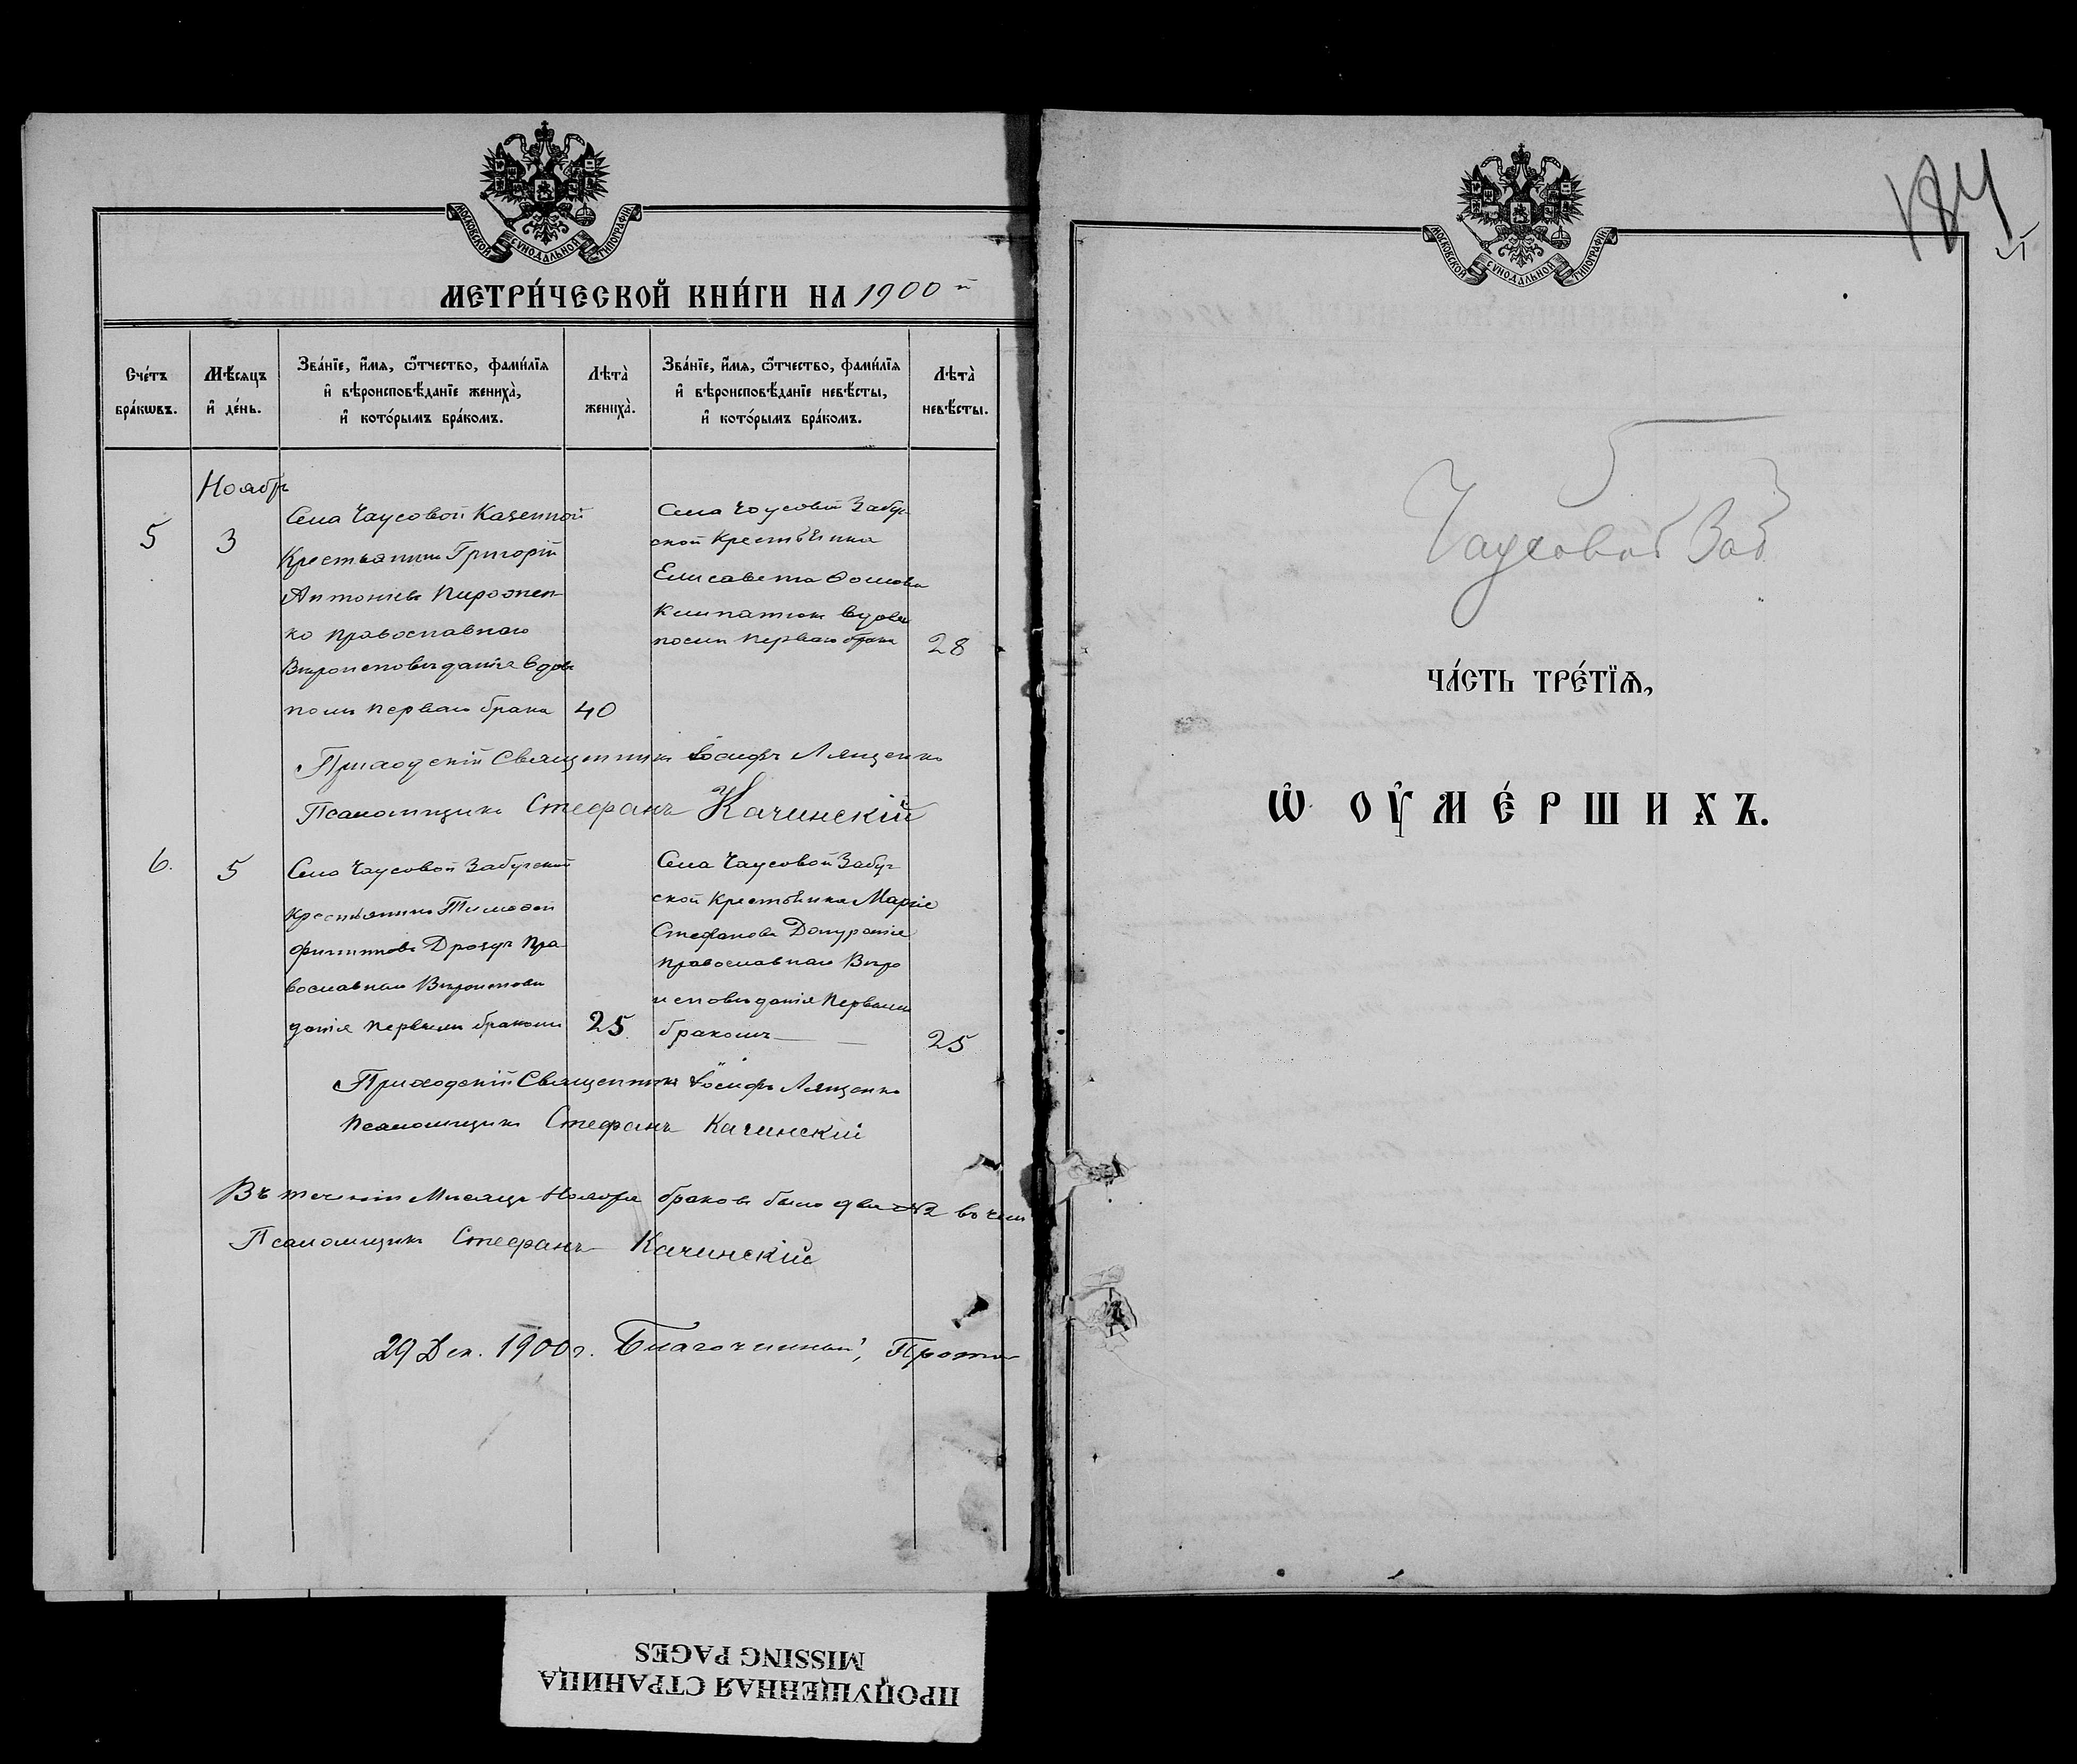 МОСКОВСКОЙ СѴНОДАЛЬНОЙ ТИПОГРАФІИ
МЕТРИ́ЧЕСКОЙ КНИ́ГИ НА 1900й
Сче́тъ бра́кѡвъ.
Мѣ́сяцъ и҆ де́нь.
Зва́нїе, и҆́мя, ѻ҆́тчество, фами́лїя
и҆ вѣроисповѣ́данїе жениха̀,
и҆ кото́рымъ бра́комъ.
Лѣта̀ жениха̀.
Зва́нїе, и҆́мя, ѻ҆́тчество, фами́лїя
и҆ вѣроисповѣ́данїе невѣ́сты,
и҆ кото́рымъ бра́комъ.
Лѣта̀ невѣ́сты.
Ноябр
5
3
Села Чаусовой Казенной
Крестьянинъ Григорій
Антоніевъ Пирожен
ко православнаго
Вѣроисповѣданія вдовъ
послѣ перваго брака
40
Села Чаусовой Забуг
ской Крестьянка
Елисавета Ѳомова
вдова
послѣ перваго брака
28
Приходскій Священникъ Іосифъ Лященко
Псаломщикъ Стефанъ Качинскій
6.
5
Села Чаусовой Забугской
Крестьянинъ Тимоѳей
Филипповъ Дроздъ Пра
вославнаго Вѣроисповѣ
данія первымъ бракомъ
25
Села Чаусовой Забуг
ской Крестьянка Марія
Стефанова
православнаго Вѣро
исповѣданія первымъ
бракомъ
25
Приходскій Священникъ Іосифъ Лященко
Псаломщикъ Стефанъ Качинскій
Въ теченіи Мѣсяца Ноября браковъ было два №2 въ чем
Псаломщикъ Стефанъ Качинскій
29 Дек. 1900 г. Благочинный, Прото
ПРОПУЩЕННАЯ СТРАНИЦА
MISSING PAGES
184
МОСКОВСКОЙ СѴНОДАЛЬНОЙ ТИПОГРАФІИ
Чаусовой Заб
ЧА́СТЬ ТРЕ́ТЇѦ,
Ѡ҆ ОУ҆МЕ́РШИХЪ.